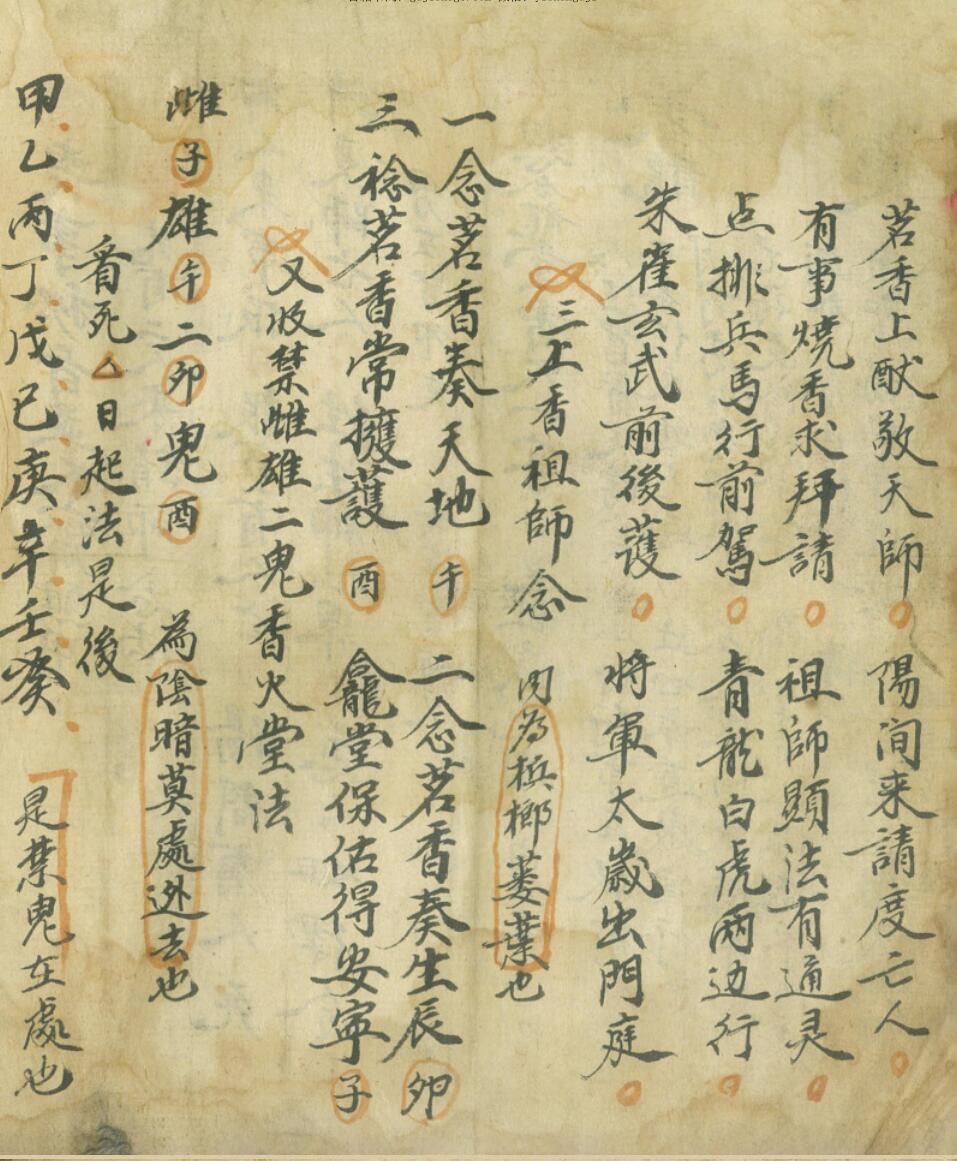 茗香上献敬天師 陽间来請度亡人
有事燒香求拜請 祖師顕法有通灵
点排兵馬行前駕 青龍白虎兩边行
朱雀玄武前後護 將軍太歲出門庭
三上香祖師念 内為槟榔蒌葉也
一念茗香奏天地 午 二念茗香奏生辰 卯
三稔茗香常擁護 酉 龕堂保佑得安寜 子
又收禁雌雄二鬼香火堂法
雌子雄午二卯鬼酉 為陰暗莫處迯去也
看死△日起法是後
甲乙丙丁戊己庚辛壬癸 是禁鬼在處也